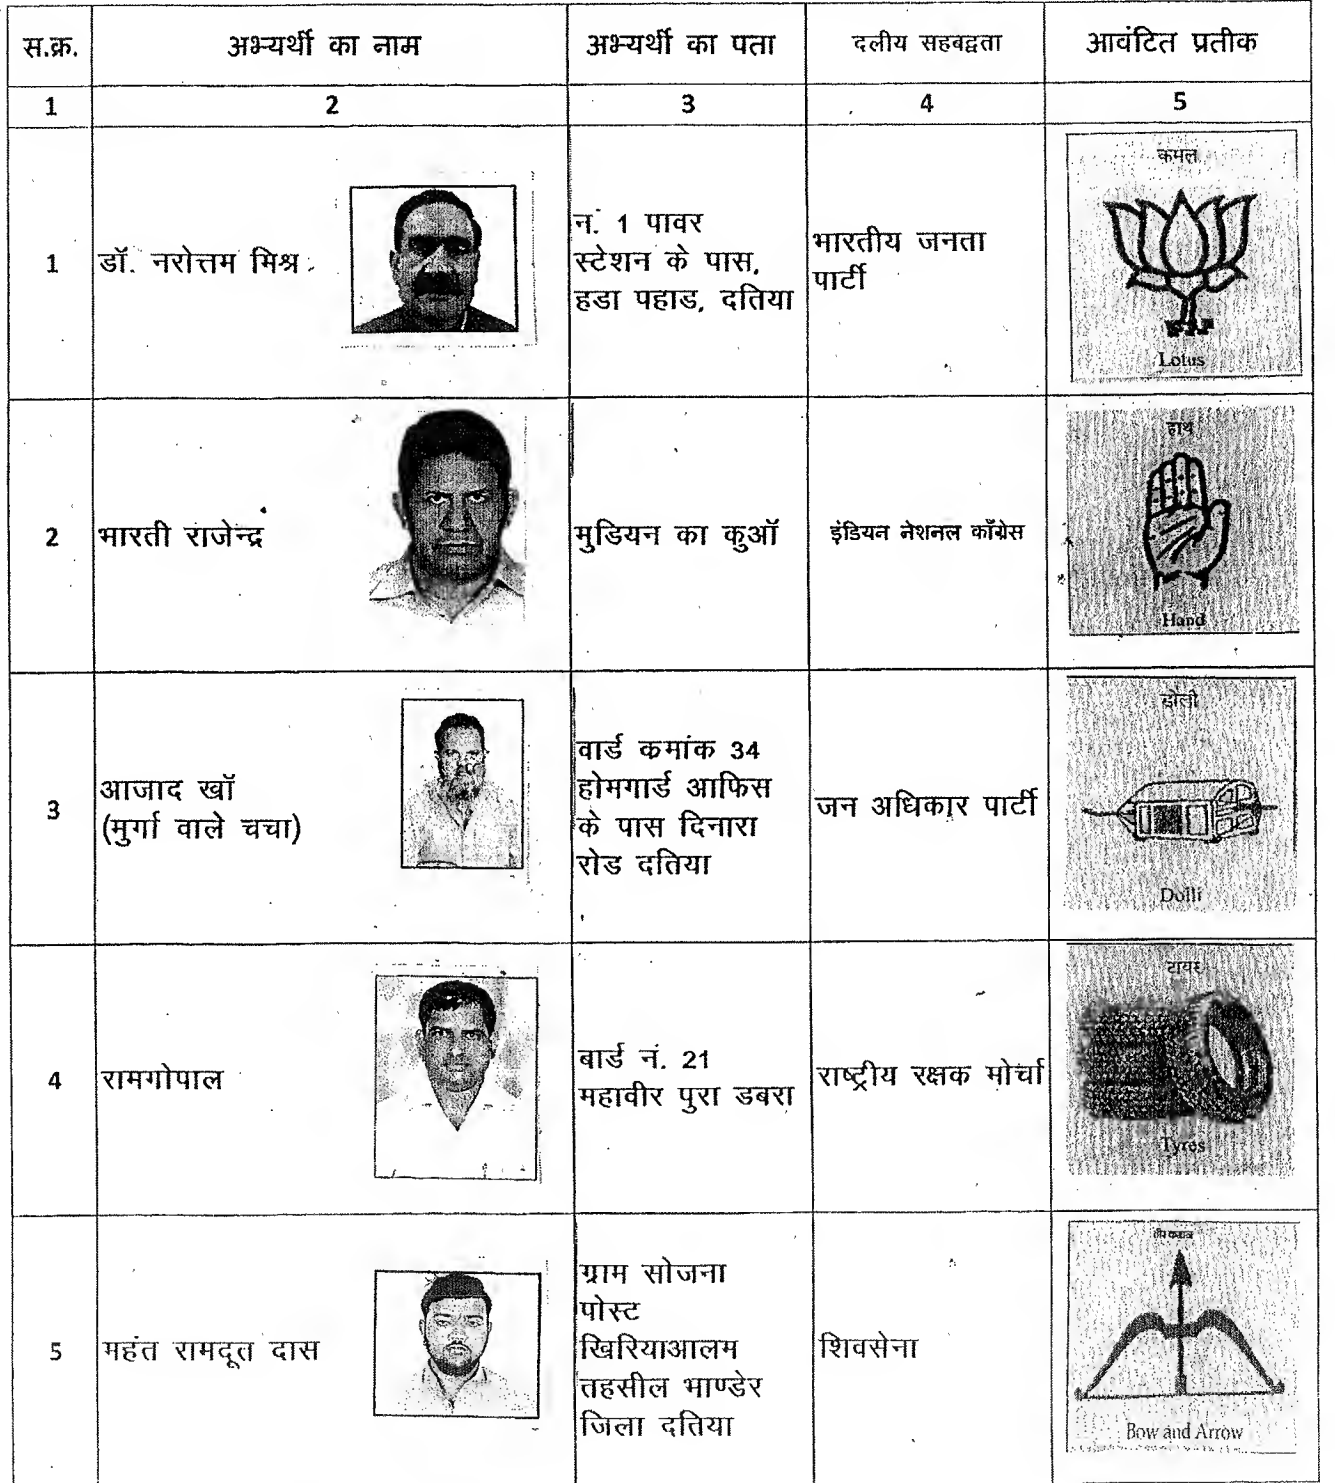 स.क्र.
अभ्यर्थी का नाम
अभ्यर्थी का पता
दलीय सहबद्वता
आवंटित प्रतीक
1
2
3
4
5
1
डॉ. नरोत्तम मिश्र
न. 1 पावर
स्टेशन के पास,
हडा पहाड, दतिया
भारतीय जनता
पार्टी
कमल
Lotus
2
भारती राजेन्द्र
मुडियन का कुऑ
इंडियन नेशनल काँग्रेस
हाथ
Hand
3
आजाद खॉ
(मुर्गा वाले चचा)
वार्ड कमांक 34
होमगार्ड आफिस
के पास दिनारा
रोड दतिया
जन अधिकार पार्टी
डोली
Dolli
4
रामगोपाल
बार्ड नं. 21
महावीर पुरा डबरा
राष्ट्रीय रक्षक मोर्चा
टायर
Tyres
5
महंत रामदूत दास
ग्राम सोजना
पोस्ट
खिरियाआलम
तहसील भाण्डेर
जिला दतिया
शिवसेना
Bow and Arrow